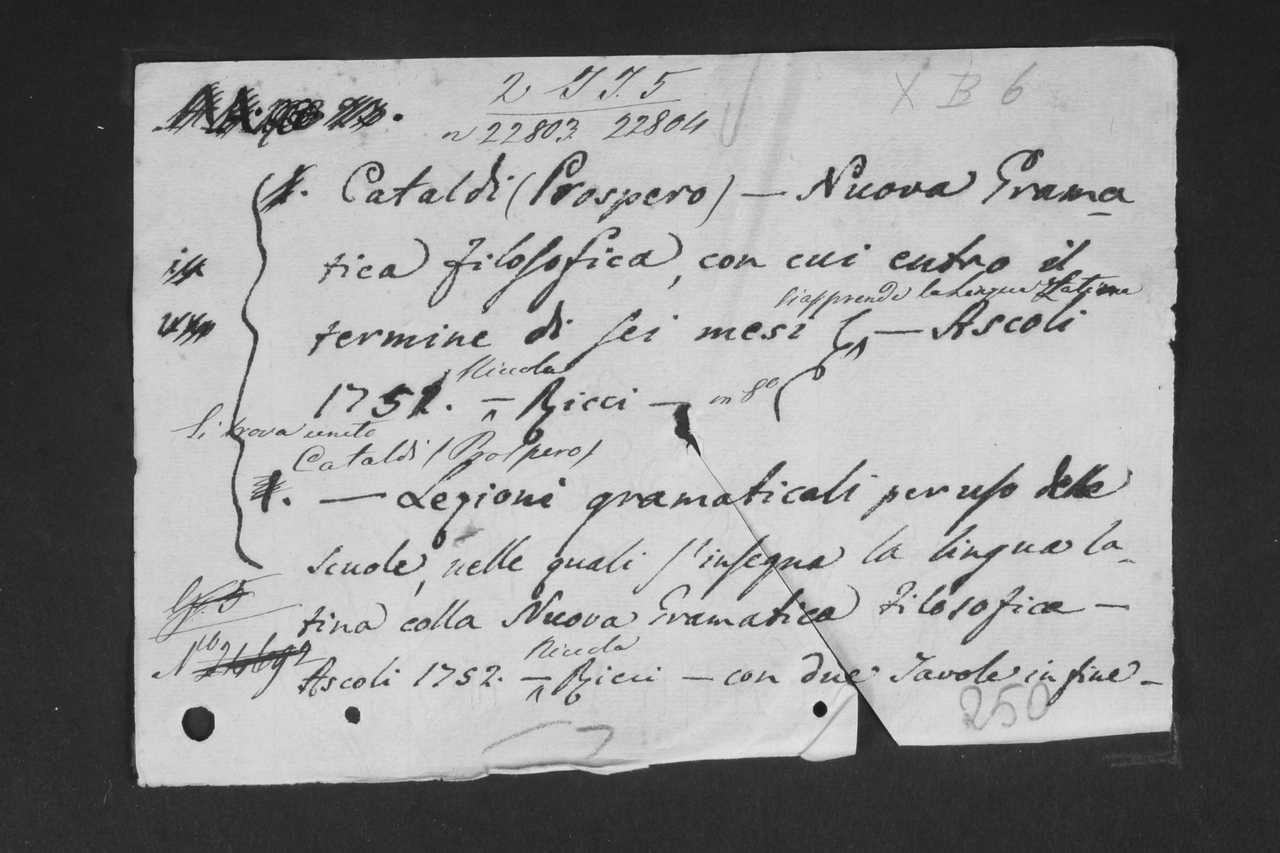 2 JJ.5
n 22803 22804
X B 6
1. Cataldi (Prospero) — Nuova Grama
tica filosofica, con cui entro il
si apprende la Lingua Latina
termine di sei mesi — Ascoli
Niccola
1752. — Ricci — in 8º
Si trova unito
Cataldi (Prospero)
1. — Lezioni gramaticali per uso delle
scuole, nelle quali s'insegna la lingua la-
Gg. 5
tina colla Nuova Gramatica filosofica —
Niccola
Nº 24692
Ascoli 1752. — Ricci — con due Tavole in fine —
250